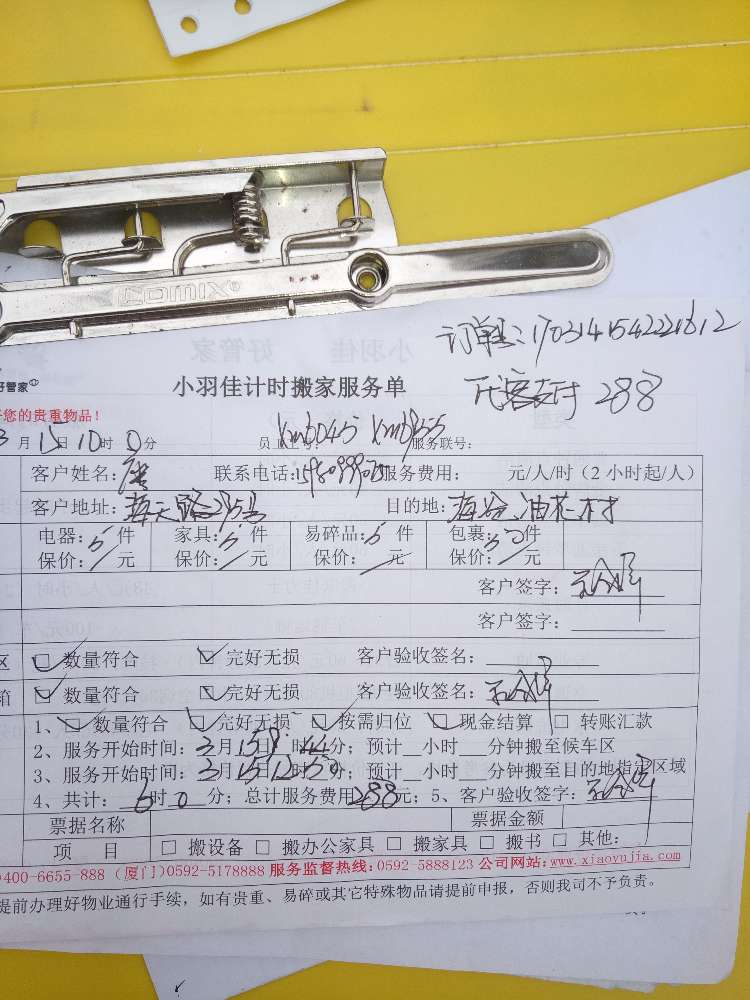 XIMOG
订单号:170314154221612
好管家
小羽佳计时搬家服务单
288
您的贵重物品!
3月15日10时0分 员工工号: 服务联号:
客户姓名:唐 联系电话: 服务费用: 元/人/时(2小时起/人)
客户地址: 目的地:
电器:5件 家具:5件 易碎品:5件 包裹:30件
保价:/元 保价:/元 保价:/元 保价:/元
客户签字:
客户签字:
区 ☑ 数量符合 ☑ 完好无损 客户验收签名:
箱 ☑ 数量符合 ☑ 完好无损 客户验收签名:
1、☑ 数量符合 ☑ 完好无损 ☑ 按需归位 ☑ 现金结算 □ 转账汇款
2、服务开始时间:3月15日 时44分;预计__小时__分钟搬至候车区
3、服务开始时间:3月15日12时50分;预计__小时__分钟搬至目的地指定区域
4、共计:6时0分;总计服务费用288元;5、客户验收签字:
票据名称 票据金额
项 目 □ 搬设备 □ 搬办公家具 □ 搬家具 □ 搬书 □ 其他:
400-6655-888 (厦门)0592-5178888 服务监督热线:0592-5888123 公司网站:www.xiaoyujia.com
提前办理好物业通行手续,如有贵重、易碎或其它特殊物品请提前申报,否则我司不予负责。